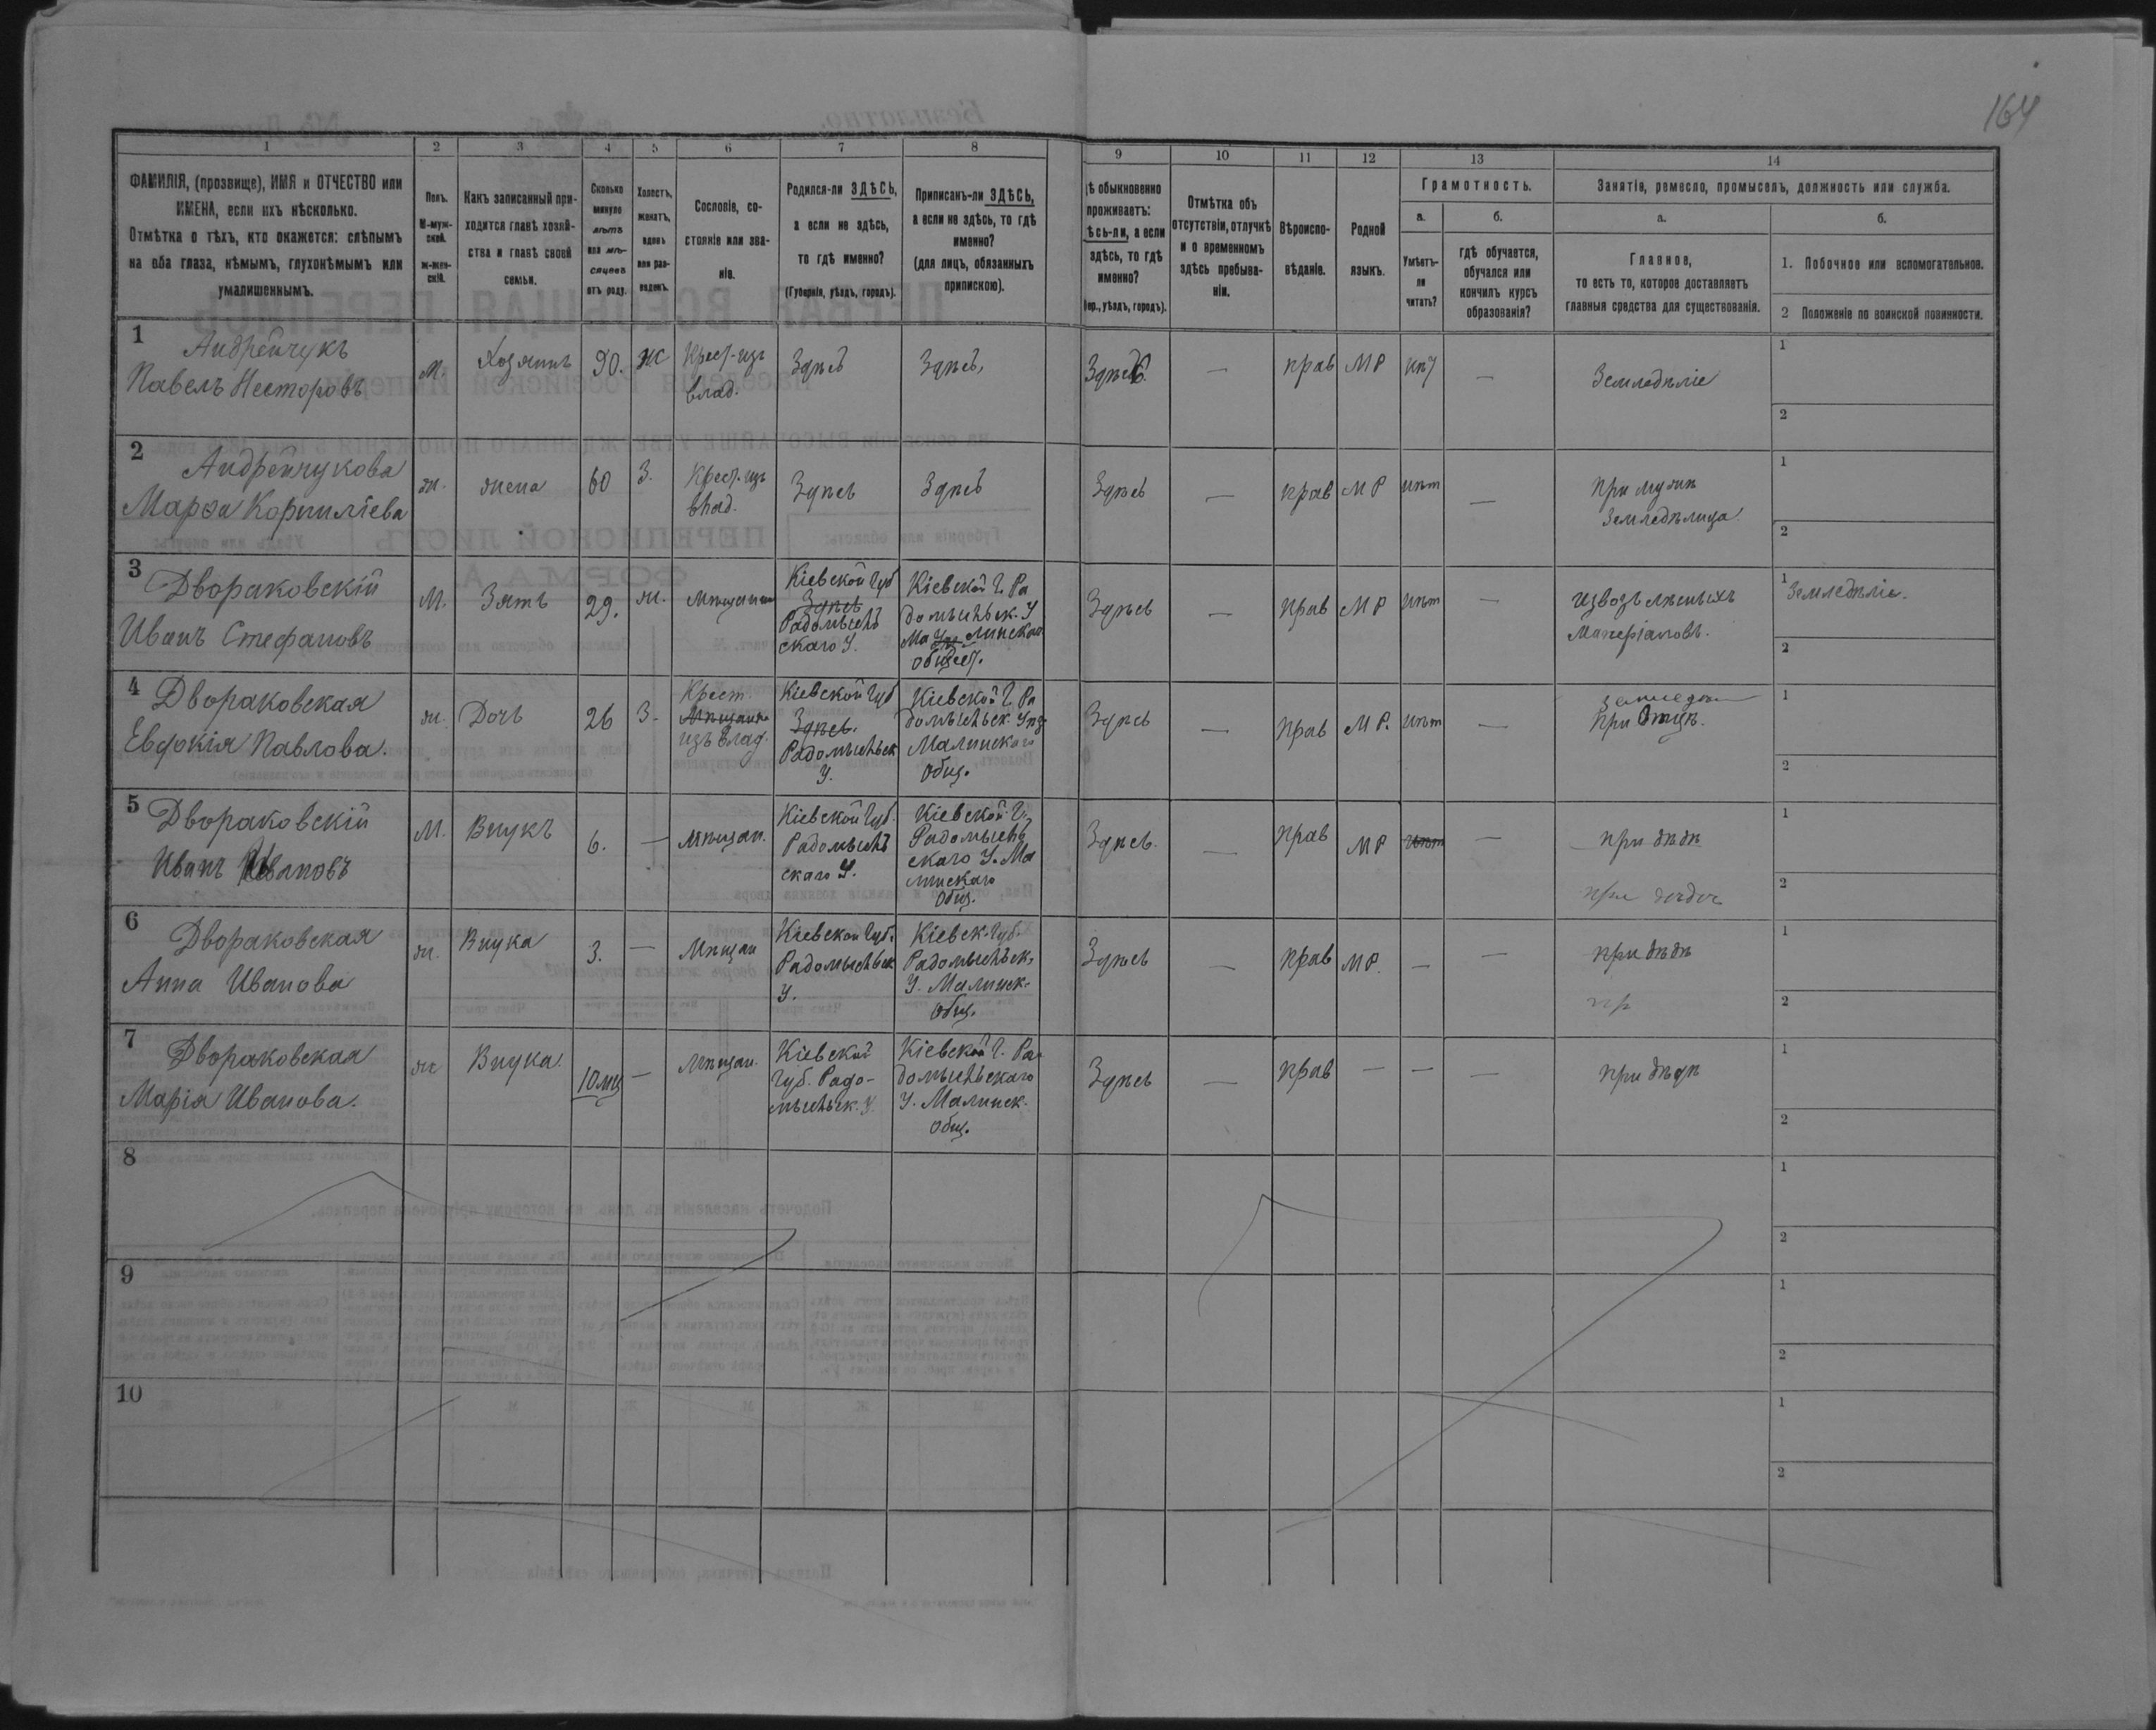 164
1 2 3 4 5 6 7 8 9 10 11 12 13 14
ФАМИЛІЯ, (прозвище), ИМЯ и ОТЧЕСТВО или
ИМЕНА, если ихъ нѣсколько.
Отмѣтка о тѣхъ, кто окажется: слѣпымъ
на оба глаза, нѣмымъ, глухонѣмымъ или
умалишеннымъ.
Полъ.
М-муж-
ской.
ж-жен-
скій.
Какъ записанный при-
ходится главѣ хозяй-
ства и главѣ своей
семьи.
Сколько
минуло
лѣтъ
или мѣ-
сяцевъ
отъ роду.
Холостъ,
женатъ,
вдовъ
или раз-
веденъ.
Сословіе, со-
стояніе или зва-
ніе.
Родился-ли ЗДѢСЬ,
а если не здѣсь,
то гдѣ именно?
(Губернія, уѣздъ, городъ).
Приписанъ-ли ЗДѢСЬ,
а если не здѣсь, то гдѣ
именно?
(для лицъ, обязанныхъ
припискою).
ѣ обыкновенно
проживаетъ:
ѣсь-ли, а если
здѣсь, то гдѣ
именно?
ер., уѣздъ, городъ).
Отмѣтка объ
отсутствіи, отлучкѣ
и о временномъ
здѣсь пребыва-
ніи.
Вѣроиспо-
вѣданіе.
Родной
языкъ.
Грамотность.
а.
Умѣетъ-
ли
читать?
б.
гдѣ обучается,
обучался или
кончилъ курсъ
образованія?
Занятіе, ремесло, промыселъ, должность или служба.
а.
Главное,
то есть то, которое доставляетъ
главныя средства для существованія.
б.
1. Побочное или вспомогательное.
2 Положеніе по воинской повинности.
1
Андрейчукъ
Павелъ Несторовъ
М.
Хозяинъ
90.
ж
Крест. изъ
влад.
Здѣсь
Здѣсь,
Здѣсь
—
прав
МР
—
Земледѣліе
1
2
2
Андрейчукова
Марѳа Корнилѣева
ж.
жена
60
З.
Крест. изъ
влад.
Здѣсь
Здѣсь
Здѣсь
—
прав
МР
нѣт
—
при мужѣ
Земледѣлица
1
2
3
Двораковскій
Иванъ Стефановъ
М.
Зять
29.
ж.
Мѣщанин
Кіевской Губ
Здѣсь
Радомысль
скаго У.
Кіевской Г. Ра
домысльск. У
общест.
Здѣсь
—
прав
МР
нѣт
—
Извозъ лѣсныхъ
Матеріаловъ.
1
Земледѣліе.
2
4
Двораковская
Евдокія Павлова.
ж.
Дочь
26
З.
Крест.
Мѣщанка
изъ влад.
Кіевской Губ
Здѣсь.
Радомысльск
У.
Кіевской Г. Ра
домысльск. Уѣз.
Малинскаго
Общ.
Здѣсь
—
прав
МР.
нѣт
—
при Отцѣ.
1
2
5
Двораковскій
Иванъ Ивановъ
М.
Внукъ
6.
—
Мѣщан.
Кіевской Губ.
Радомысль
скаго У.
Кіевской Г.
Радомысль
скаго У. Ма
линскаго
Общ.
Здѣсь.
—
прав
МР
нѣт
—
при дѣдѣ
1
2
6
Двораковская
Анна Иванова
ж.
Внука
3.
—
Мѣщан
Кіевской Губ.
Радомысльск
У.
Кіевск. Губ.
Радомысльск,
У. Малинск.
Общ.
Здѣсь
—
прав
МР.
—
—
при дѣдѣ
1
2
7
Двораковская
Марія Иванова.
ж
Внука.
10 мц
—
Мѣщан.
Кіевской
Губ. Радо-
мысльск. У.
Кіевской Г. Ра
домысльскаго
У. Малинск.
Общ.
Здѣсь
—
прав
—
—
—
при дѣдѣ
1
2
8
1
2
9
1
2
10
1
2